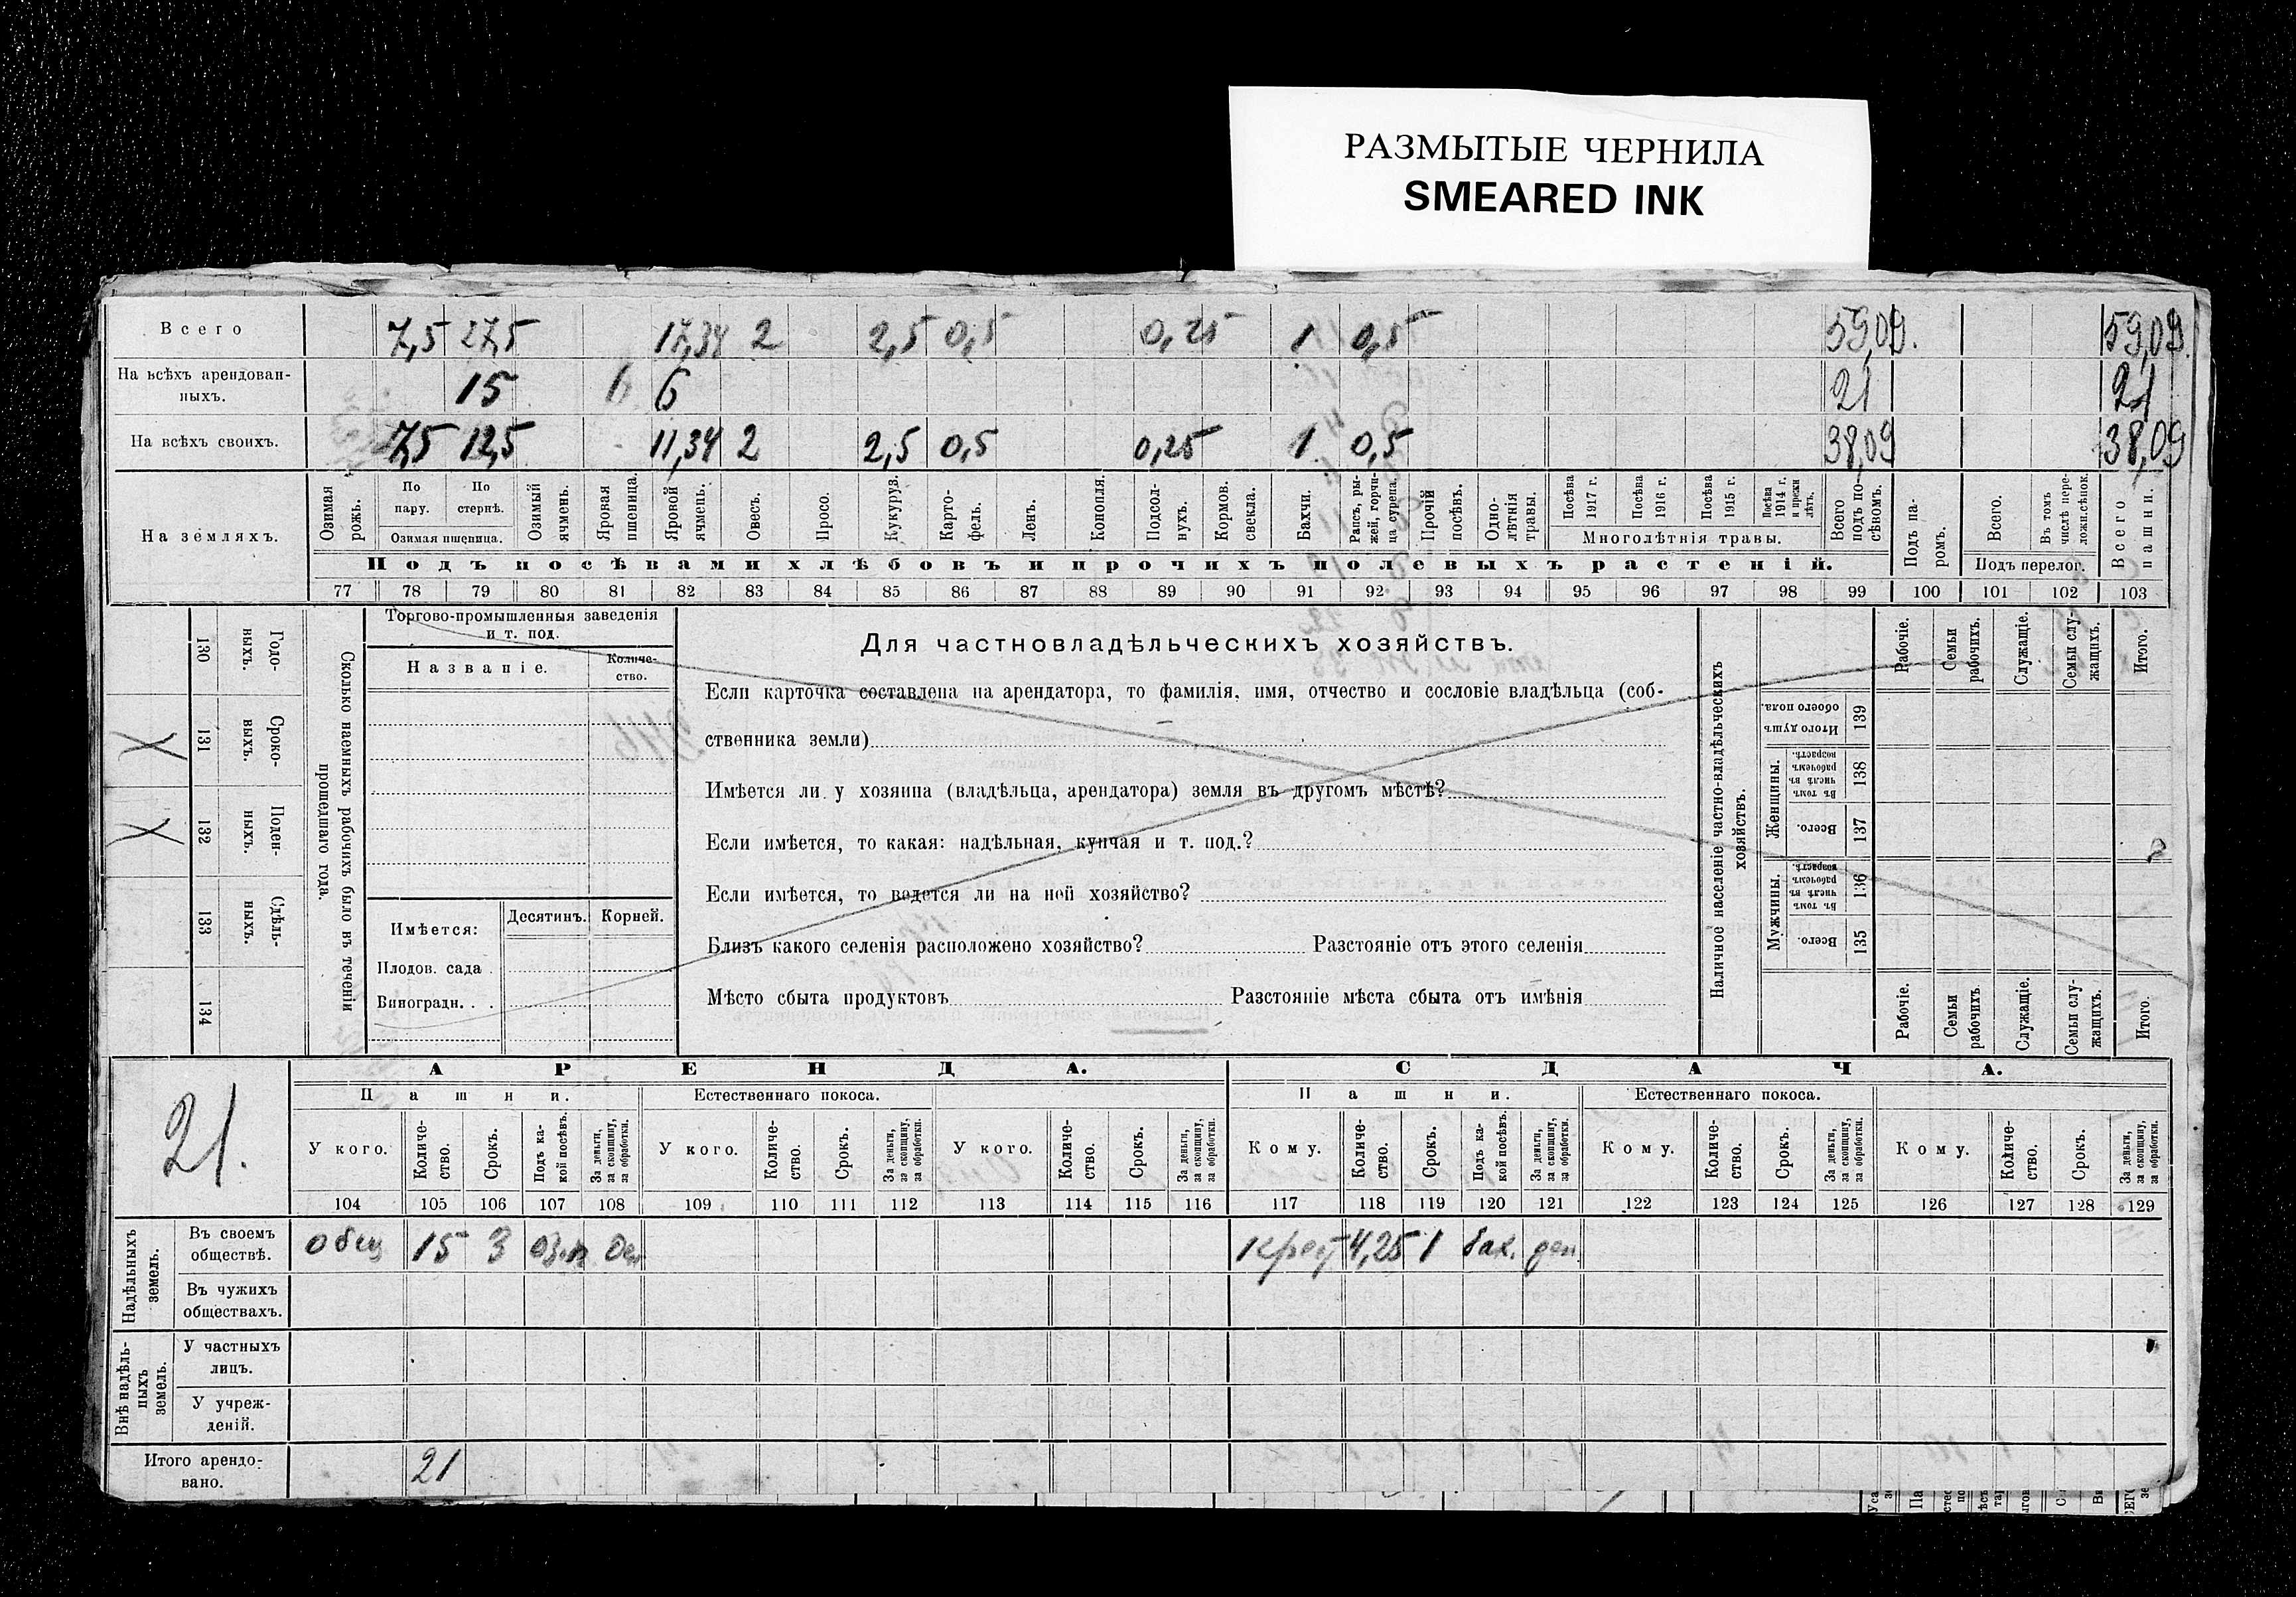 РАЗМЫТЫЕ ЧЕРНИЛА
SMEARED INK
Всего 7,5 27,5 17,34 2 2,5 0,5 0,25 1 0,5 59,09. 59,09.
На всѣхъ арендован-
ныхъ. 15 6 21 21
На всѣхъ своихъ. 7,5 12,5 11,34 2 2,5 0,5 0,25 1 0,5 38,09 38,09
На земляхъ.
Озимая рожь.
По пару.
По стернѣ.
Озимая пшеница.
Озимый ячмень.
Яровая пшеница.
Яровой ячмень.
Овесъ.
Просо.
Кукуруз.
Карто-
фель.
Ленъ.
Конопля.
Подсол-
нухъ.
Кормов. свекла.
Бахчи.
Рапсъ, ры-
жей, горчи-
ца сурепа.
Прочій посѣвъ.
Одно-
лѣтнія травы.
Посѣва 1917 г.
Посѣва 1916 г.
Посѣва 1915 г.
Посѣва 1914 г. и прежн лѣтъ.
Многолѣтнія травы.
Всего подъ по-
сѣвомъ.
Подъ па-
ромъ.
Всего.
Въ томъ числѣ пере-
ложн.сѣнок.
Подъ перелог.
Всего пашни.
Подъ посѣвами хлѣбовъ и прочихъ полевыхъ растеній.
77 78 79 80 81 82 83 84 85 86 87 88 89 90 91 92 93 94 95 96 97 98 99 100 101 102 103
Годо-
выхъ.
130
Сроко-
выхъ.
131
Поден-
ныхъ.
132
Сдѣль-
ныхъ.
133
134
Сколько наемныхъ рабочихъ было въ теченіи
прошедшаго года.
Торгово-промышленныя заведенія
и т. под.
Названіе.
Количе-
ство.
Имѣется: Десятинъ. Корней.
Плодов. сада .
Виноградн. . .
Для частновладѣльческихъ хозяйствъ.
Если карточка составлена на арендатора, то фамилія, имя, отчество и сословіе владѣльца (соб-
ственника земли)
Имѣется ли у хозяина (владѣльца, арендатора) земля въ другомъ мѣстѣ?
Если имѣется, то какая: надѣльная, купчая и т. под.?
Если имѣется, то ведется ли на ней хозяйство?
Близъ какого селенія расположено хозяйство? Разстояніе отъ этого селенія
Мѣсто сбыта продуктовъ Разстояніе мѣста сбыта отъ имѣнія
Наличное населеніе частно-владѣльческихъ
хозяйствъ.
Рабочіе.
Семьи рабочихъ.
Служащіе.
Семьи слу-
жащихъ.
Итого.
Итого душъ обоего пола.
139
Женщины.
Въ томъ числѣ въ рабочемъ возрастѣ.
138
Всего.
137
Мужчины.
Въ томъ числѣ въ рабочемъ возрастѣ.
136
Всего.
135
Рабочіе.
Семьи рабочихъ.
Служащіе.
Семьи слу-
жащихъ.
Итого.
21.
АРЕНДА. СДАЧА.
Пашни. Естественнаго покоса. Пашни. Естественнаго покоса.
У кого.
Количе-
ство.
Срокъ.
Подъ ка-
кой посѣвъ.
За деньги, за скопщину, за обработки.
У кого.
Количе-
ство.
Срокъ.
За деньги, за скопщину, за обработки.
У кого.
Количе-
ство.
Срокъ.
За деньги, за скопщину, за обработки.
Кому.
Количе-
ство.
Срокъ.
Подъ ка-
кой посѣвъ.
За деньги, за скопщину, за обработки.
Кому.
Количе-
ство.
Срокъ.
За деньги, за скопщину, за обработки.
Кому.
Количе-
ство.
Срокъ.
За деньги, за скопщину, за обработки.
104 105 106 107 108 109 110 111 112 113 114 115 116 117 118 119 120 121 122 123 124 125 126 127 128 129
Надѣльныхъ
земель.
Въ своемъ
обществѣ. общ 15 3 4,25 1 бах. ден
Въ чужихъ
обществахъ.
Внѣ надѣль-
ныхъ
земель.
У частныхъ
лицъ.
У учреж-
деній.
Итого арендо-
вано. 21